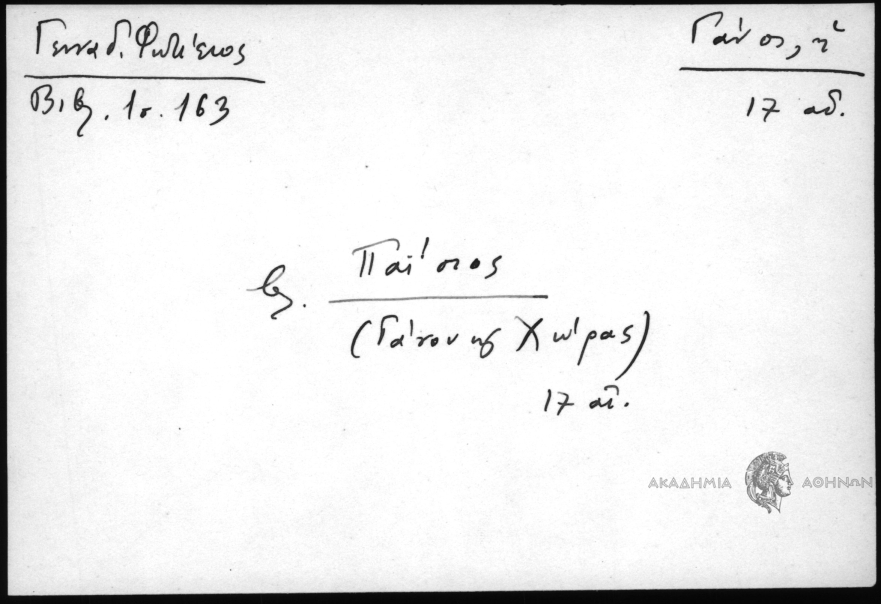 Γενναδ. Φωτίειος
Βιβλ. 1 σ. 163
Γάνος, ἡ
17 αἰ.
βλ. Παΐσιος
(Γάνου κ Χώρας)
17 αἰ.
ΑΚΑΔΗΜΙΑ ΑΘΗΝΩΝ